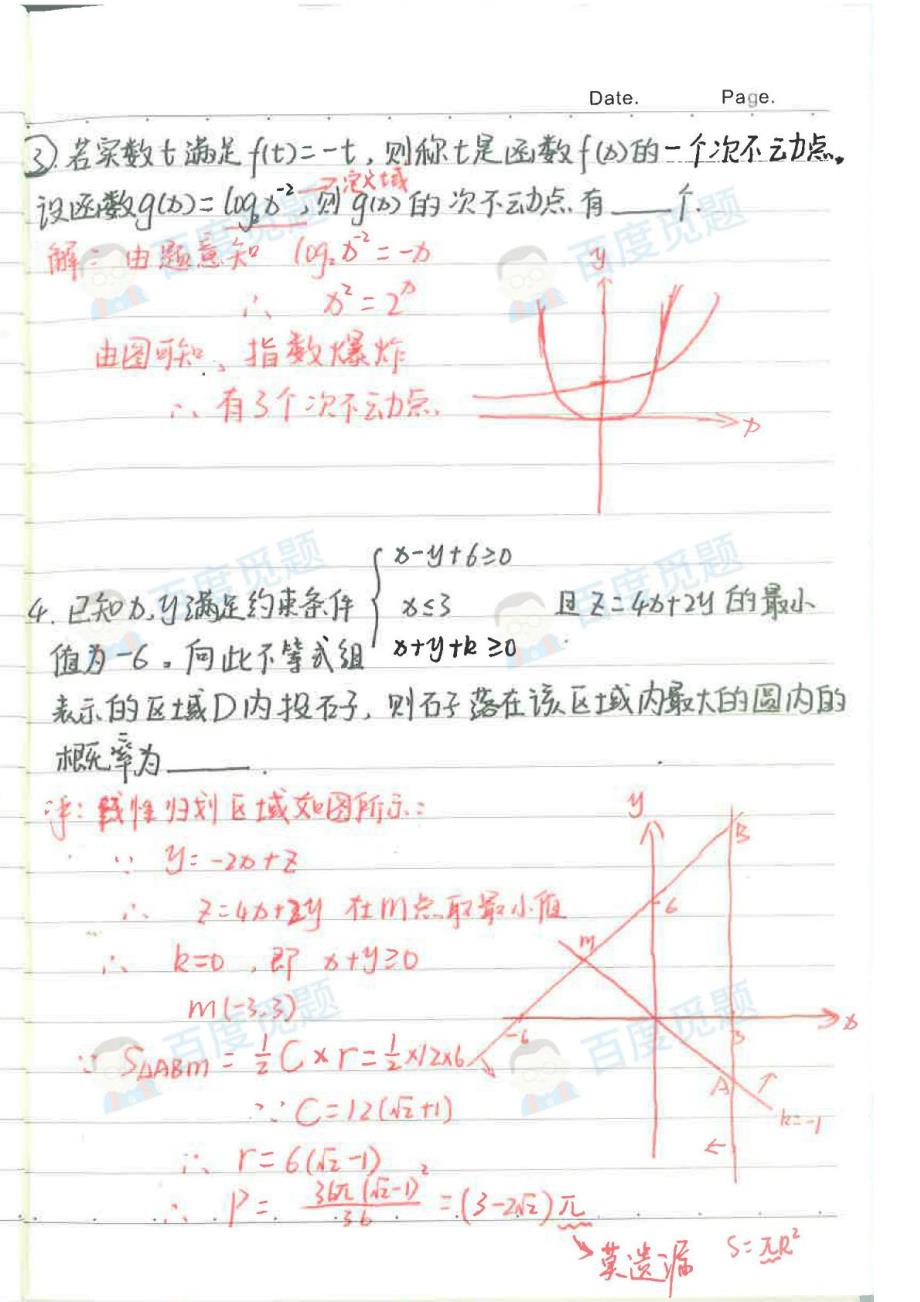 Date. Page.
③若实数t满足f(t)=-t,则称t是函数f(x)的一个次不动点。
→定义域
设函数g(x)=log₂x⁻²,则g(x)的次不动点有____个.
解:由题意知 log₂x⁻²=-x
∴ x²=2ˣ
由图可知、指数爆炸
∴有3个次不动点.
y
x
4.已知x,y满足约束条件 { x-y+6≥0 x≤3 x+y+k≥0 且z=4x+2y的最小
值为-6。向此不等式组
表示的区域D内投石子,则石子落在该区域内最大的圆内的
概率为____.
线性归划区域如图所示:
∵ y=-2x+z
∴ z=4x+2y 在m点取最小值
∴ k=0,即 x+y≥0
m(-3,3)
∵ S△ABM=½C×r=½×12×6
∵ C=12(√2+1)
∴ r=6(√2-1)
∴ P=36π(√2-1)²/36=(3-2√2)π
→莫遗漏 S=πR²
y
B
6
m
-6
3
x
A
k=-1
百度觅题
百度觅题
百度觅题
百度觅题
百度觅题
百度觅题